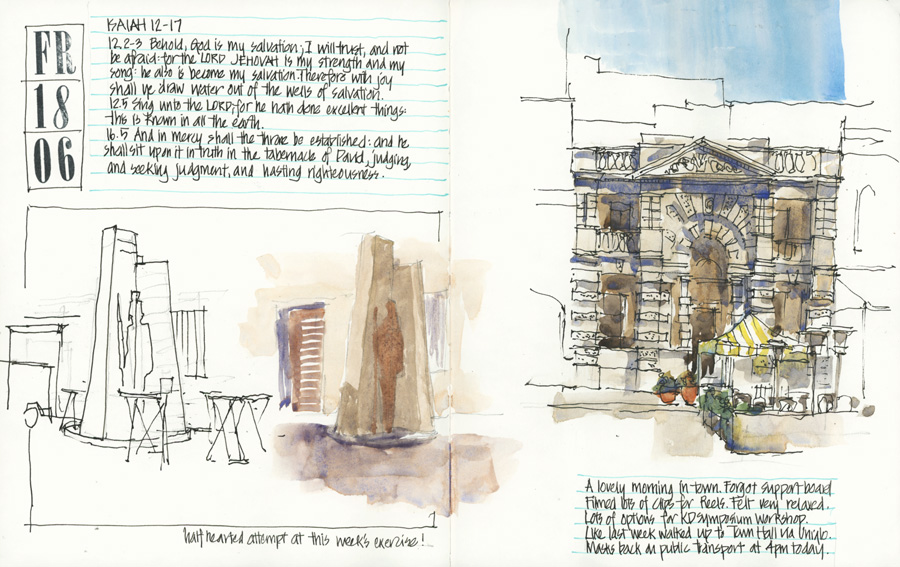 FR
18
06
ISAIAH 12-17
12.2-3 Behold, God is my salvation; I will trust, and not
be afraid: for the LORD JEHOVAH is my strength and my
song: he also is become my salvation. Therefore with joy
shall ye draw water out of the wells of salvation.
12.5 Sing unto the LORD; for he hath done excellent things:
this is known in all the earth.
16.5 And in mercy shall the throne be established: and he
shall sit upon it in truth in the tabernacle of David, judging,
and seeking judgment, and hasting righteousness.
half hearted attempt at this week's exercise!
A lovely morning in town. Forgot support board
Filmed lots of clips for Reels. Felt very relaxed.
Lots of options for KD Symposium Workshop.
Like last week walked up to Town Hall via Uniqlo.
Masks back on public transport at 4pm today.